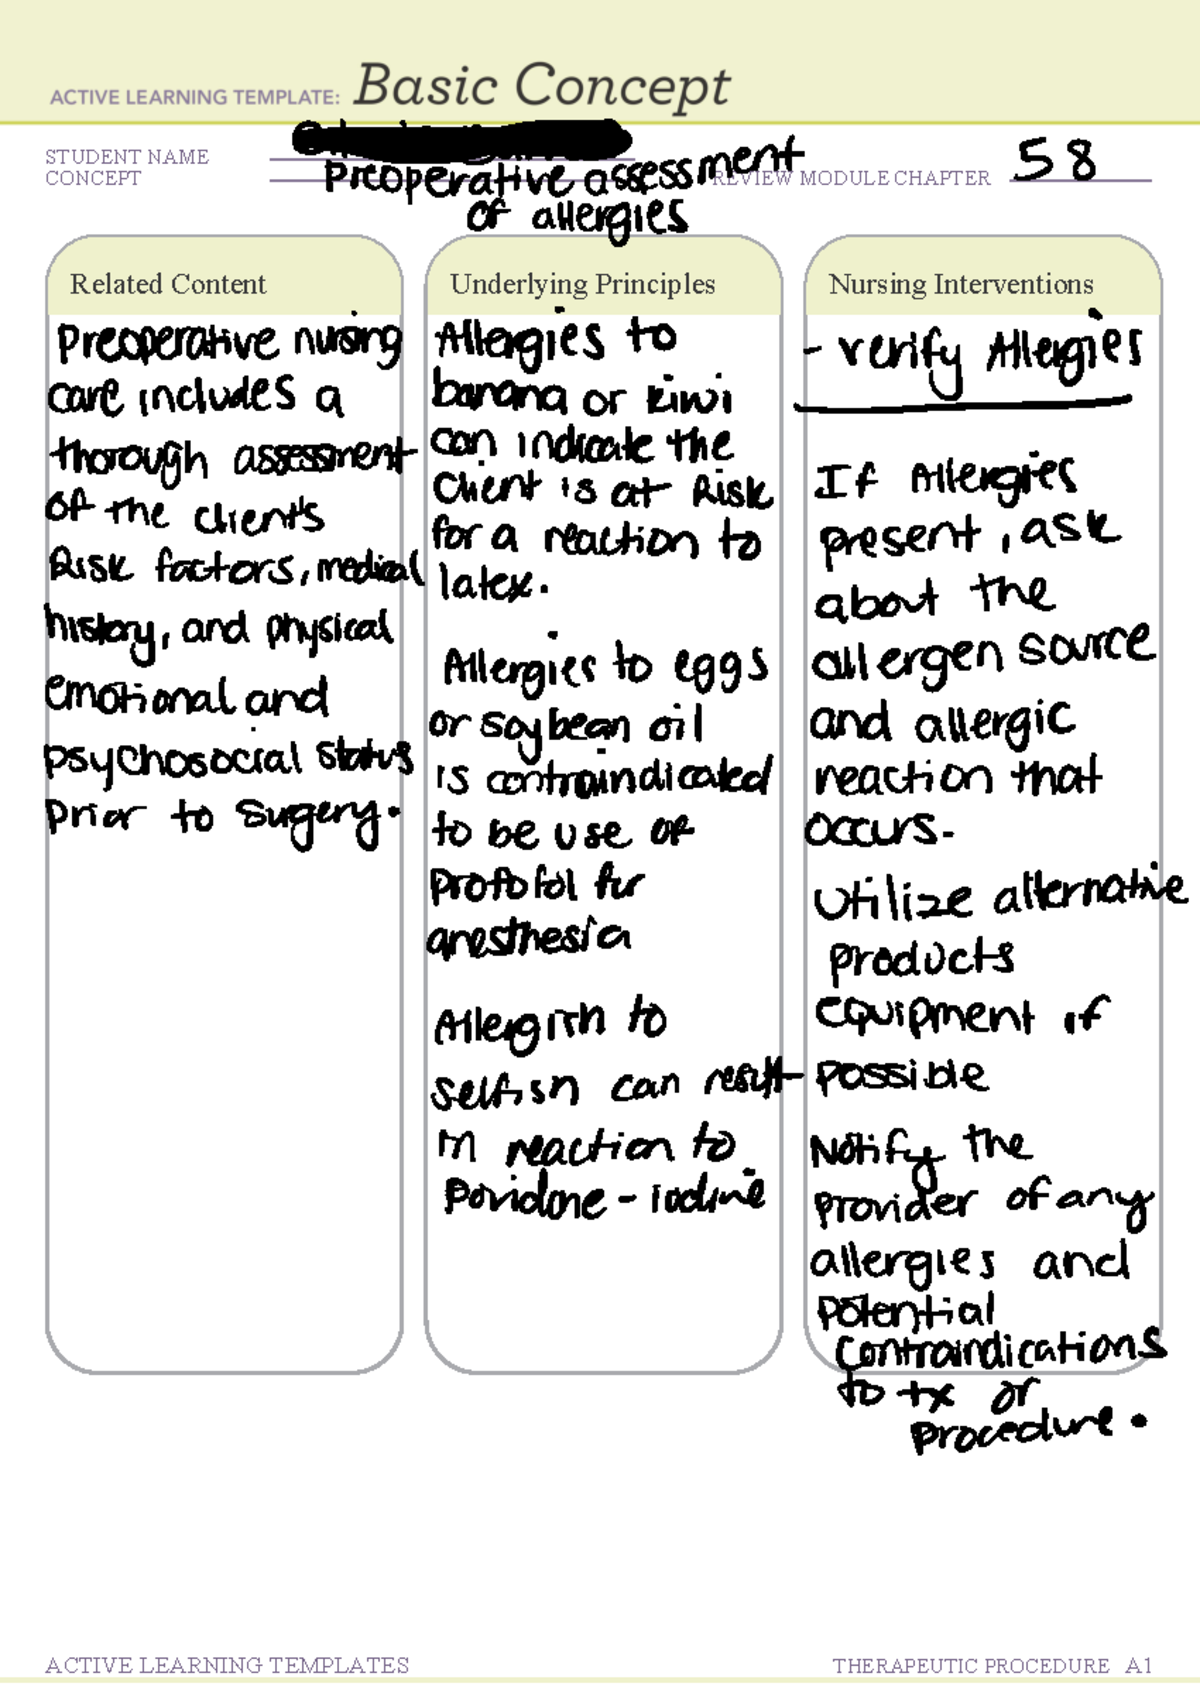 ACTIVE LEARNING TEMPLATE: Basic Concept
STUDENT NAME
CONCEPT
Preoperative assessment
of allergies
REVIEW MODULE CHAPTER 58
Related Content
Preoperative nursing
care includes a
thorough assessment
of the client's
Risk factors, medical
history, and physical
emotional and
psychosocial status
prior to surgery.
Underlying Principles
Allergies to
banana or kiwi
can indicate the
client is at Risk
for a reaction to
latex.
Allergies to eggs
or soybean oil
is contraindicated
to be use of
Protofol for
anesthesia
to
selfish can result
in reaction to
Povidone - iodine
Nursing Interventions
- verify Allergies
If Allergies
present, ask
about the
allergen source
and allergic
reaction that
occurs.
Utilize alternative
products
equipment if
possible
Notify the
provider of any
allergies and
potential
contraindications
to tx or
procedure.
ACTIVE LEARNING TEMPLATES
THERAPEUTIC PROCEDURE A1